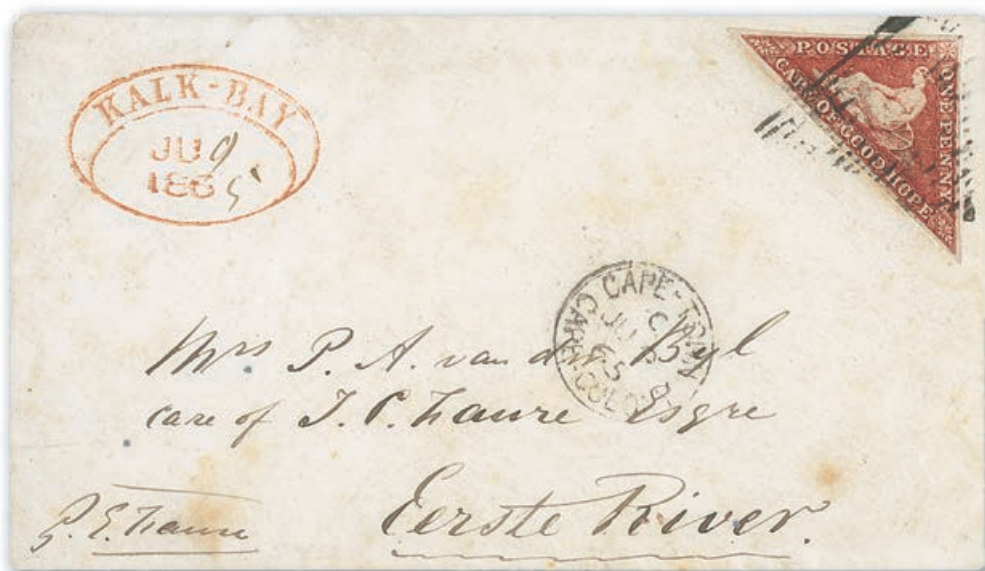 KALK-BAY
JU 9
186 5
POSTAGE
CAPE OF GOOD HOPE
ONE PENNY
CAPE-TOWN
C
JU
65
CAPE COLO
Mrs P. A. van der Byl
care of J. P. Faure Esqre
Eerste River.
P. E. Faure